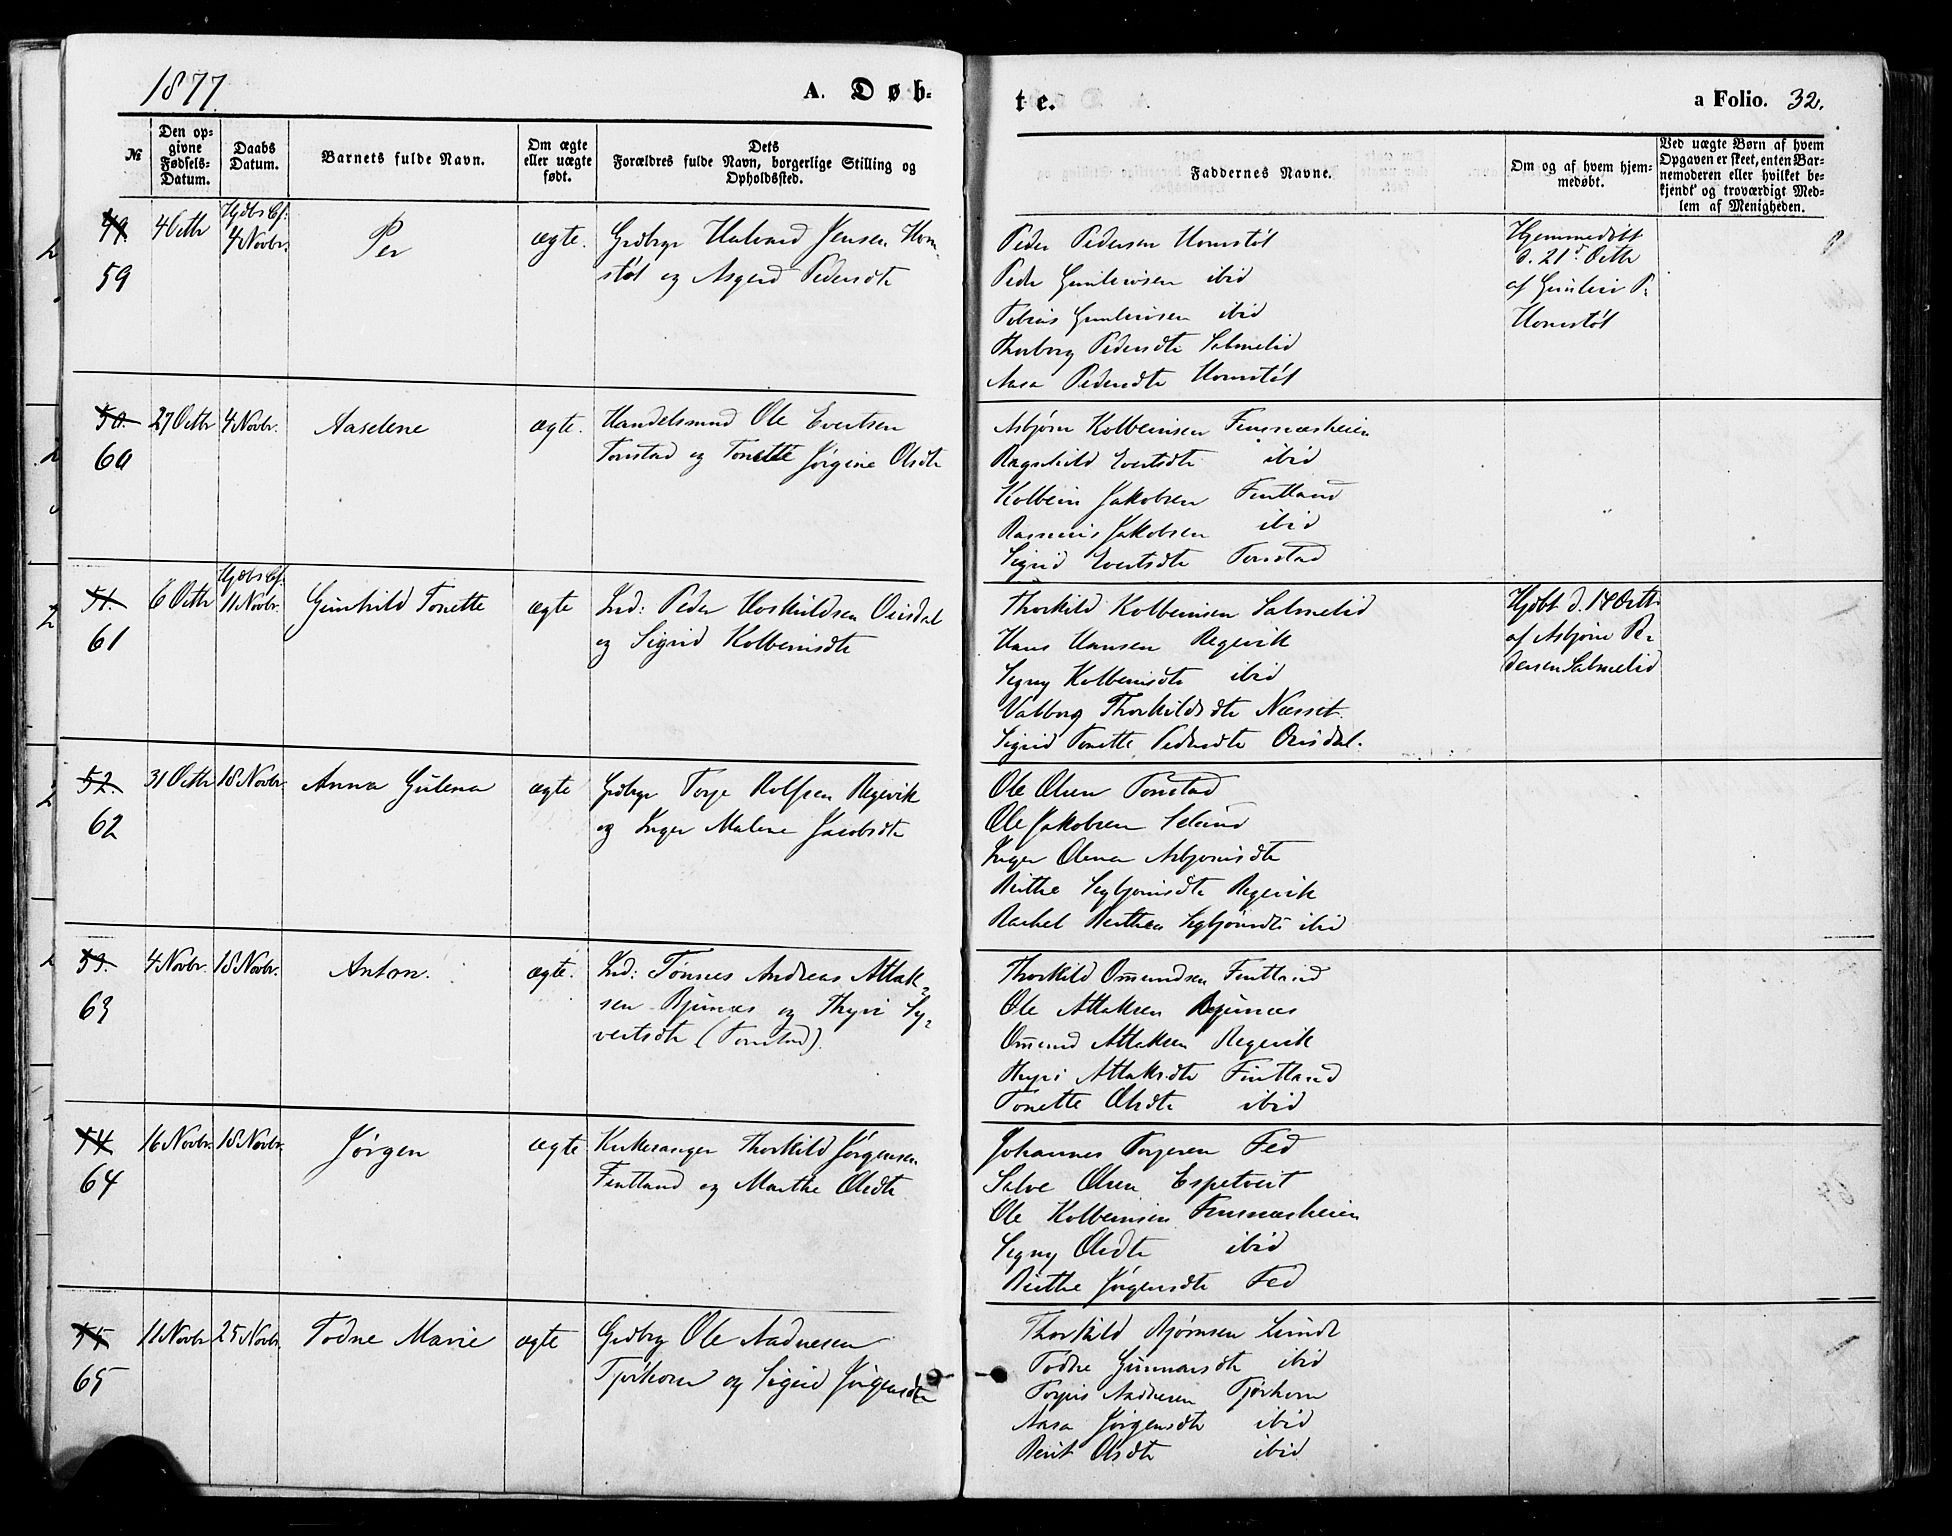 1877.
A. Døb-
te.
a Folio. 32.
№
Den op-
givne
Fødsels-
Datum.
Daabs
Datum.
Barnets fulde Navn.
Om ægte
eller uægte
født.
Dets
Forældres fulde Navn, borgerlige Stilling og
Opholdssted.
Faddernes Navne.
Om og af hvem hjem-
medøbt.
Ved uægte Børn af hvem
Opgaven er skeet, enten Bar-
nemoderen eller hvilket be-
kjendt og troværdigt Med-
lem af Menigheden.
49.
59
4 Octbr
4 Novbr.
Per
ægte.
Grdbrgr Halvard Jensen Hom-
støl og Asgerd Pedersdtr
Peder Pedersen Homstøl
Peder Gunleivsen ibid
Tobias Gunleivsen ibid
Thorborg Pedersdtr Salmelid
Aasa Pedersdtr Homstøl
Hjemmedøbt
d. 21d Octbr
af Gunleiv P.
Homstøl
50.
60
27 Octbr
4 Novbr.
Aaselene
ægte.
Handelsmand Ole Evertsen
Tonstad og Tonette Jørgine Olsdtr
Asbjørn Kolbeinsen Finsnæsheien
Ragnhild Evertsdtr ibid
Kolbein Jakobsen Fintland
Rasmus Jakobsen ibid
Sigrid Evertsdtr Tonstad
51.
61
6 Octbr
11 Novbr.
Gunhild Tonette
ægte
Ind: Peder Hoskuldsen Ousdal
og Sigrid Kolbeinsdtr
Thorkild Kolbeinsen Salmelid
Hans Hansen Regevik
Segny Kolbeinsdtr ibid
Valborg Thorkildsdtr Næsset.
Sigrid Tonette Pedersdtr Ousdal.
Hjdbt d. 14 Octbr
af Asbjørn Pe-
dersen Salmelid
52.
62
31 Octbr
18 Novbr.
Anna Gulena
ægte
Grdbrgr Torje Rolfsen Regevik
og Inger Malene Jacobsdtr
Ole Olsen Tonstad
Ole Jakobsen Seland
Inger Olena Asbjørnsdtr
Berthe Segbjørnsdtr Regevik
Rachel Berthea Segbjørnsdtr ibid
53.
63
4 Novbr.
18 Novbr.
Anton.
ægte.
Ind: Tønnes Andreas Atlak-
sen Bjunæs og Thyri Sy-
vertsdtr (Tonstad).
Thorkild Omundsen Fintland
Ole Atlaksen Bjunæs
Omund Atlaksen Regevik
Thyri Atlaksdtr Fintland
Tonette Olsdtr ibid
54
64
16 Novbr.
18 Novbr.
Jørgen
ægte
Kirkesanger Thorkild Jørgensen
Fintland og Marthe Olsdtr
Johannes Torjesen Fed
Salve Olsen Espetveit
Ole Kolbeinsen Finsnæsheien
Segny Olsdtr ibid
Berthe Jørgensdtr Fed
55
65
11 Novbr
25 Novbr.
Todne Marie
ægte
Grdbrg Ole Aadnesen
Tjørhom og Sigrid Jørgensdtr
Thorkild Bjørnsen Lunde
Todne Gunnarsdtr ibid
Torjus Aadnesen Tjørhom
Aasa Jørgensdtr ibid
Berit Olsdtr ibid